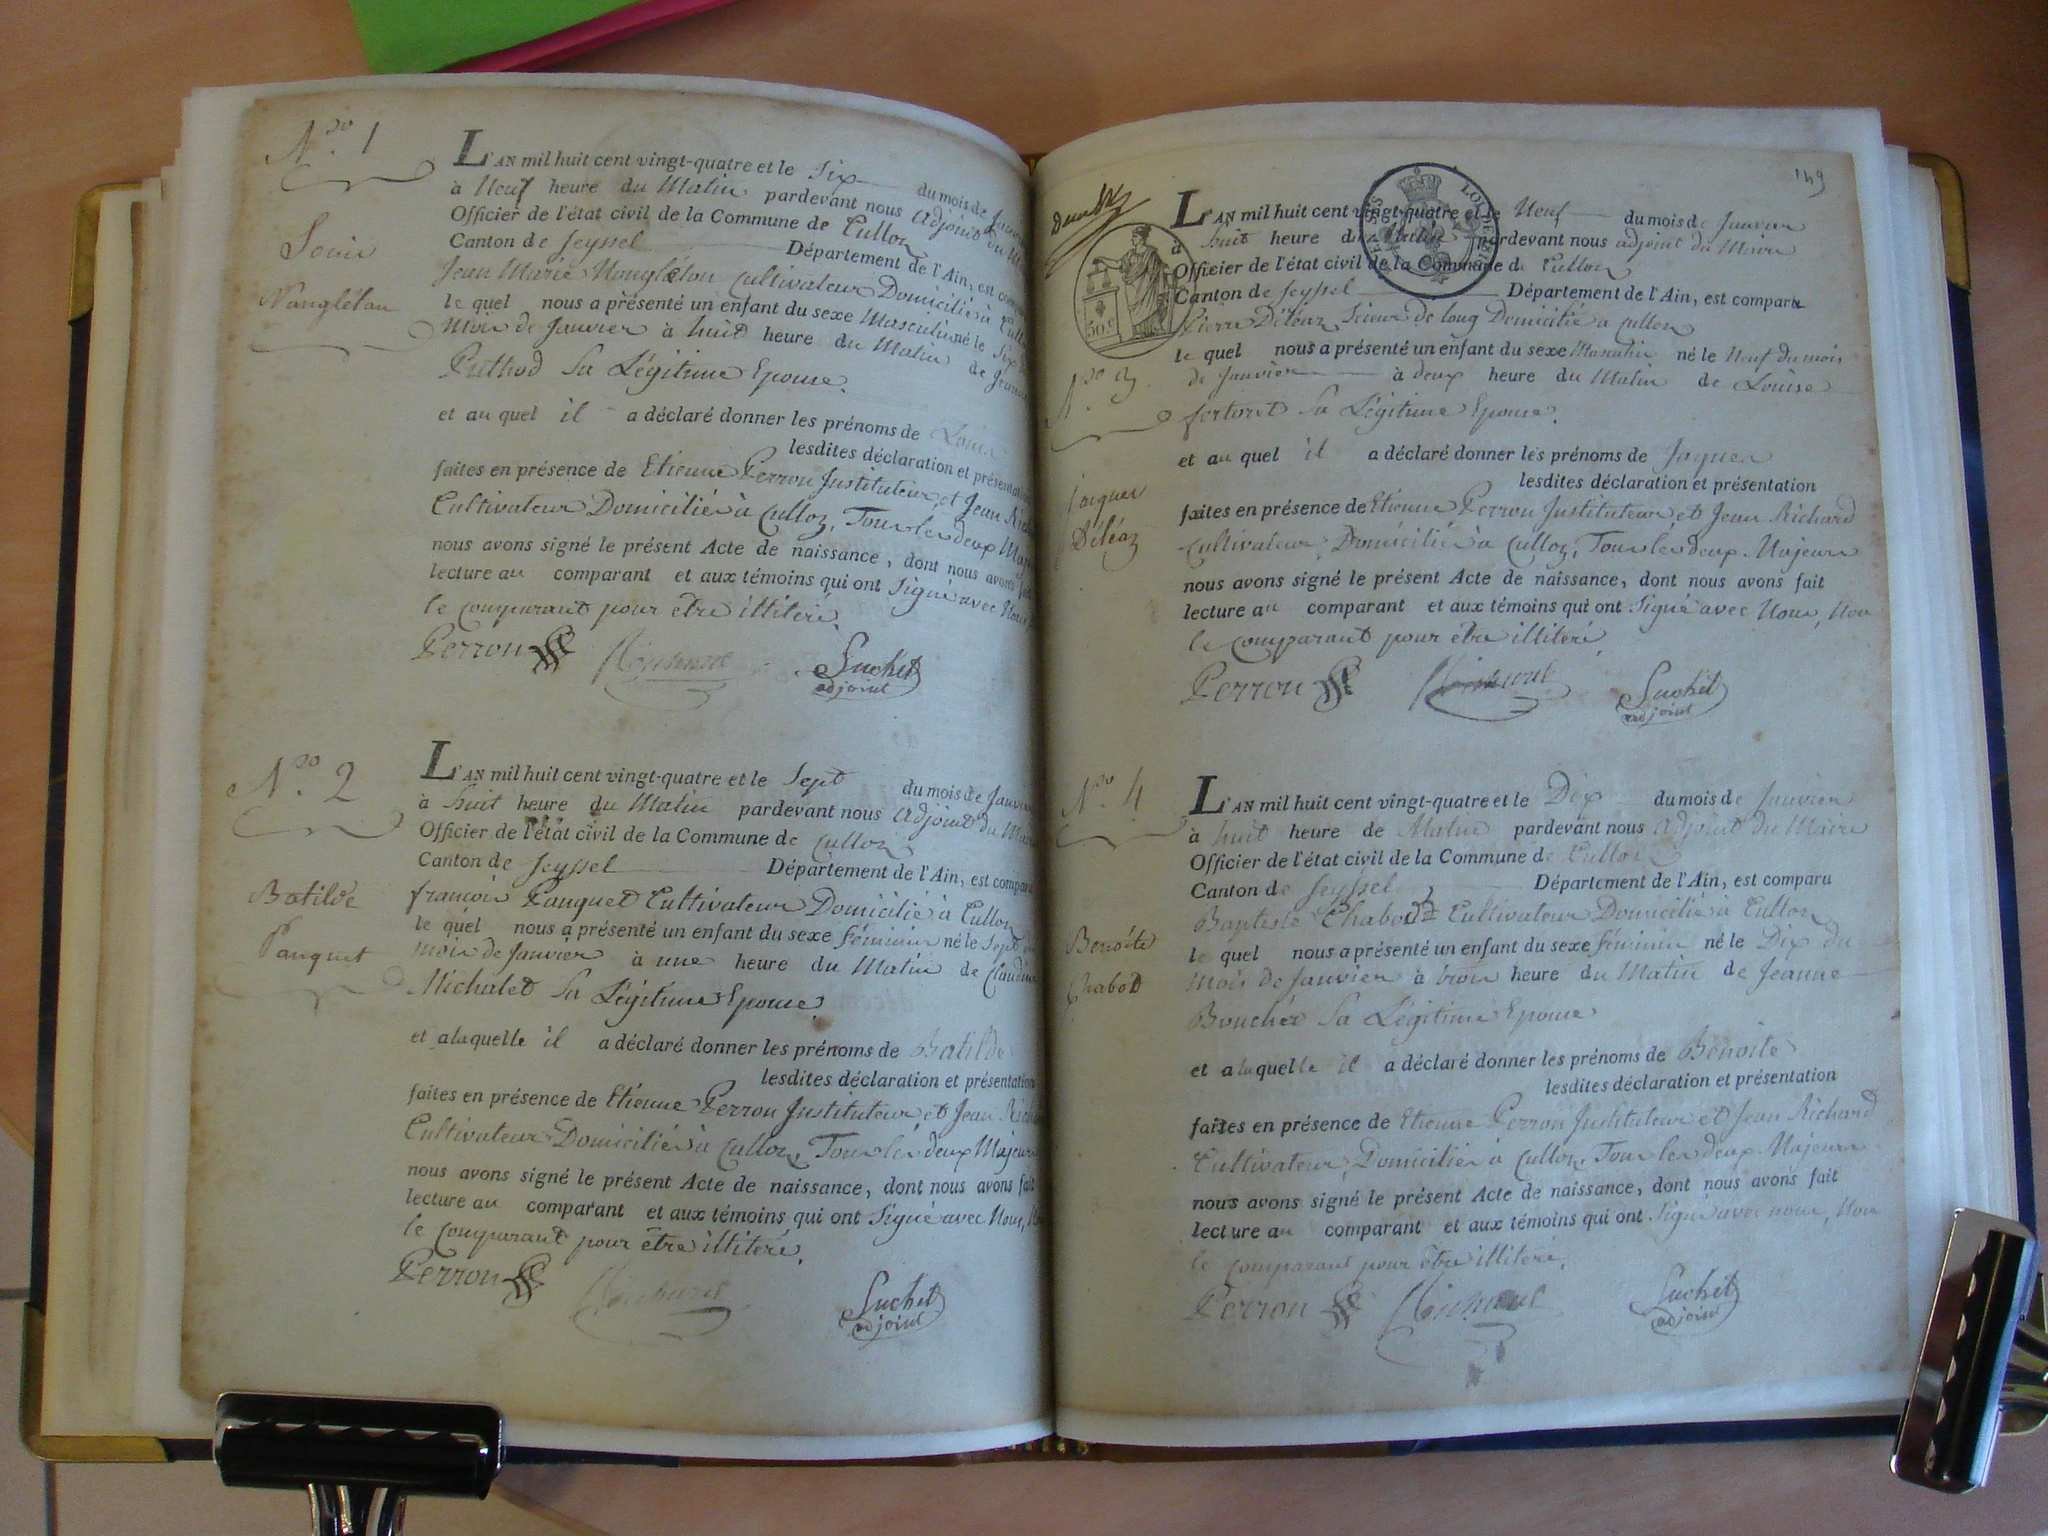 N.º 1
Louis
Nanglélou
L'AN mil huit cent vingt-quatre et le Six du mois de Janvier
à Neuf heure du Matin pardevant nous Adjoint du
Officier de l'état civil de la Commune de Culloz
Canton de Seyssel Département de l'Ain, est
Jean Marie Cultivateur Domicilié à
le quel nous a présenté un enfant du sexe Masculin né le Six
Mois de Janvier à huit heure du Matin de
Puthod Sa Légitime Epouse.
et au quel il a déclaré donner les prénoms de Louis
lesdites déclaration et présentation
faites en présence de Etienne Perron Instituteur et Jean
Cultivateur Domiciliés à Culloz, Tous les deux
nous avons signé le présent Acte de naissance, dont nous avons fait
lecture au comparant et aux témoins qui ont Signé avec Nous,
le comparant pour être illiteré.
Perron
Suchet
adjoint
N.º 2
Batilde
Pauquet
L'AN mil huit cent vingt-quatre et le Sept du mois de Janvier
à huit heure du Matin pardevant nous Adjoint du
Officier de l'état civil de la Commune de Culloz
Canton de Seyssel Département de l'Ain, est comparu
françois Pauquet Cultivateur Domicilié à Culloz
le quel nous a présenté un enfant du sexe féminin né le Sept
mois de Janvier à une heure du Matin de Claudine
Michalet Sa Légitime Epouse.
et a laquelle il a déclaré donner les prénoms de Batilde
lesdites déclaration et présentation
faites en présence de Etienne Perron Instituteur et Jean
Cultivateur Domiciliés à Culloz, Tous les deux Majeurs
nous avons signé le présent Acte de naissance, dont nous avons fait
lecture au comparant et aux témoins qui ont Signé avec Nous,
le comparant pour être illiteré.
Perron
Suchet
adjoint
149
50 c
N.º 3
Jacques
Déléaz
L'AN mil huit cent vingt-quatre et le Neuf du mois de Janvier
à huit heure du Matin pardevant nous adjoint du Maire
Officier de l'état civil de la Commune de Culloz
Canton de Seyssel Département de l'Ain, est comparu
Pierre Déléaz Scieur de long Domicilié à Culloz
le quel nous a présenté un enfant du sexe Masculin né le Neuf du mois
de Janvier à deux heure du Matin de Louise
fertoret Sa Légitime Epouse.
et au quel il a déclaré donner les prénoms de Jaques
lesdites déclaration et présentation
faites en présence de Etienne Perron Instituteur, et Jean Richard
Cultivateur, Domiciliés à Culloz, Tous les deux Majeurs
nous avons signé le présent Acte de naissance, dont nous avons fait
lecture au comparant et aux témoins qui ont Signé avec Nous, Non
le comparant pour être illiteré.
Perron
Suchet
adjoint
N.º 4
Benoite
Chabod
L'AN mil huit cent vingt-quatre et le Dix du mois de Janvier
à huit heure de Matin pardevant nous Adjoint du Maire
Officier de l'état civil de la Commune de Culloz
Canton de Seyssel Département de l'Ain, est comparu
Baptiste Chabod Cultivateur Domicilié à Culloz
le quel nous a présenté un enfant du sexe féminin né le Dix du
Mois de Janvier à trois heure du Matin de Jeanne
Boucher Sa Légitime Epouse
et a laquelle il a déclaré donner les prénoms de Benoite
lesdites déclaration et présentation
faites en présence de Etienne Perron Instituteur et Jean Richard
Cultivateur, Domiciliés à Culloz, Tous les deux Majeurs
nous avons signé le présent Acte de naissance, dont nous avons fait
lecture au comparant et aux témoins qui ont Signé avec nous, Non
le comparant pour être illiteré.
Perron
Suchet
adjoint